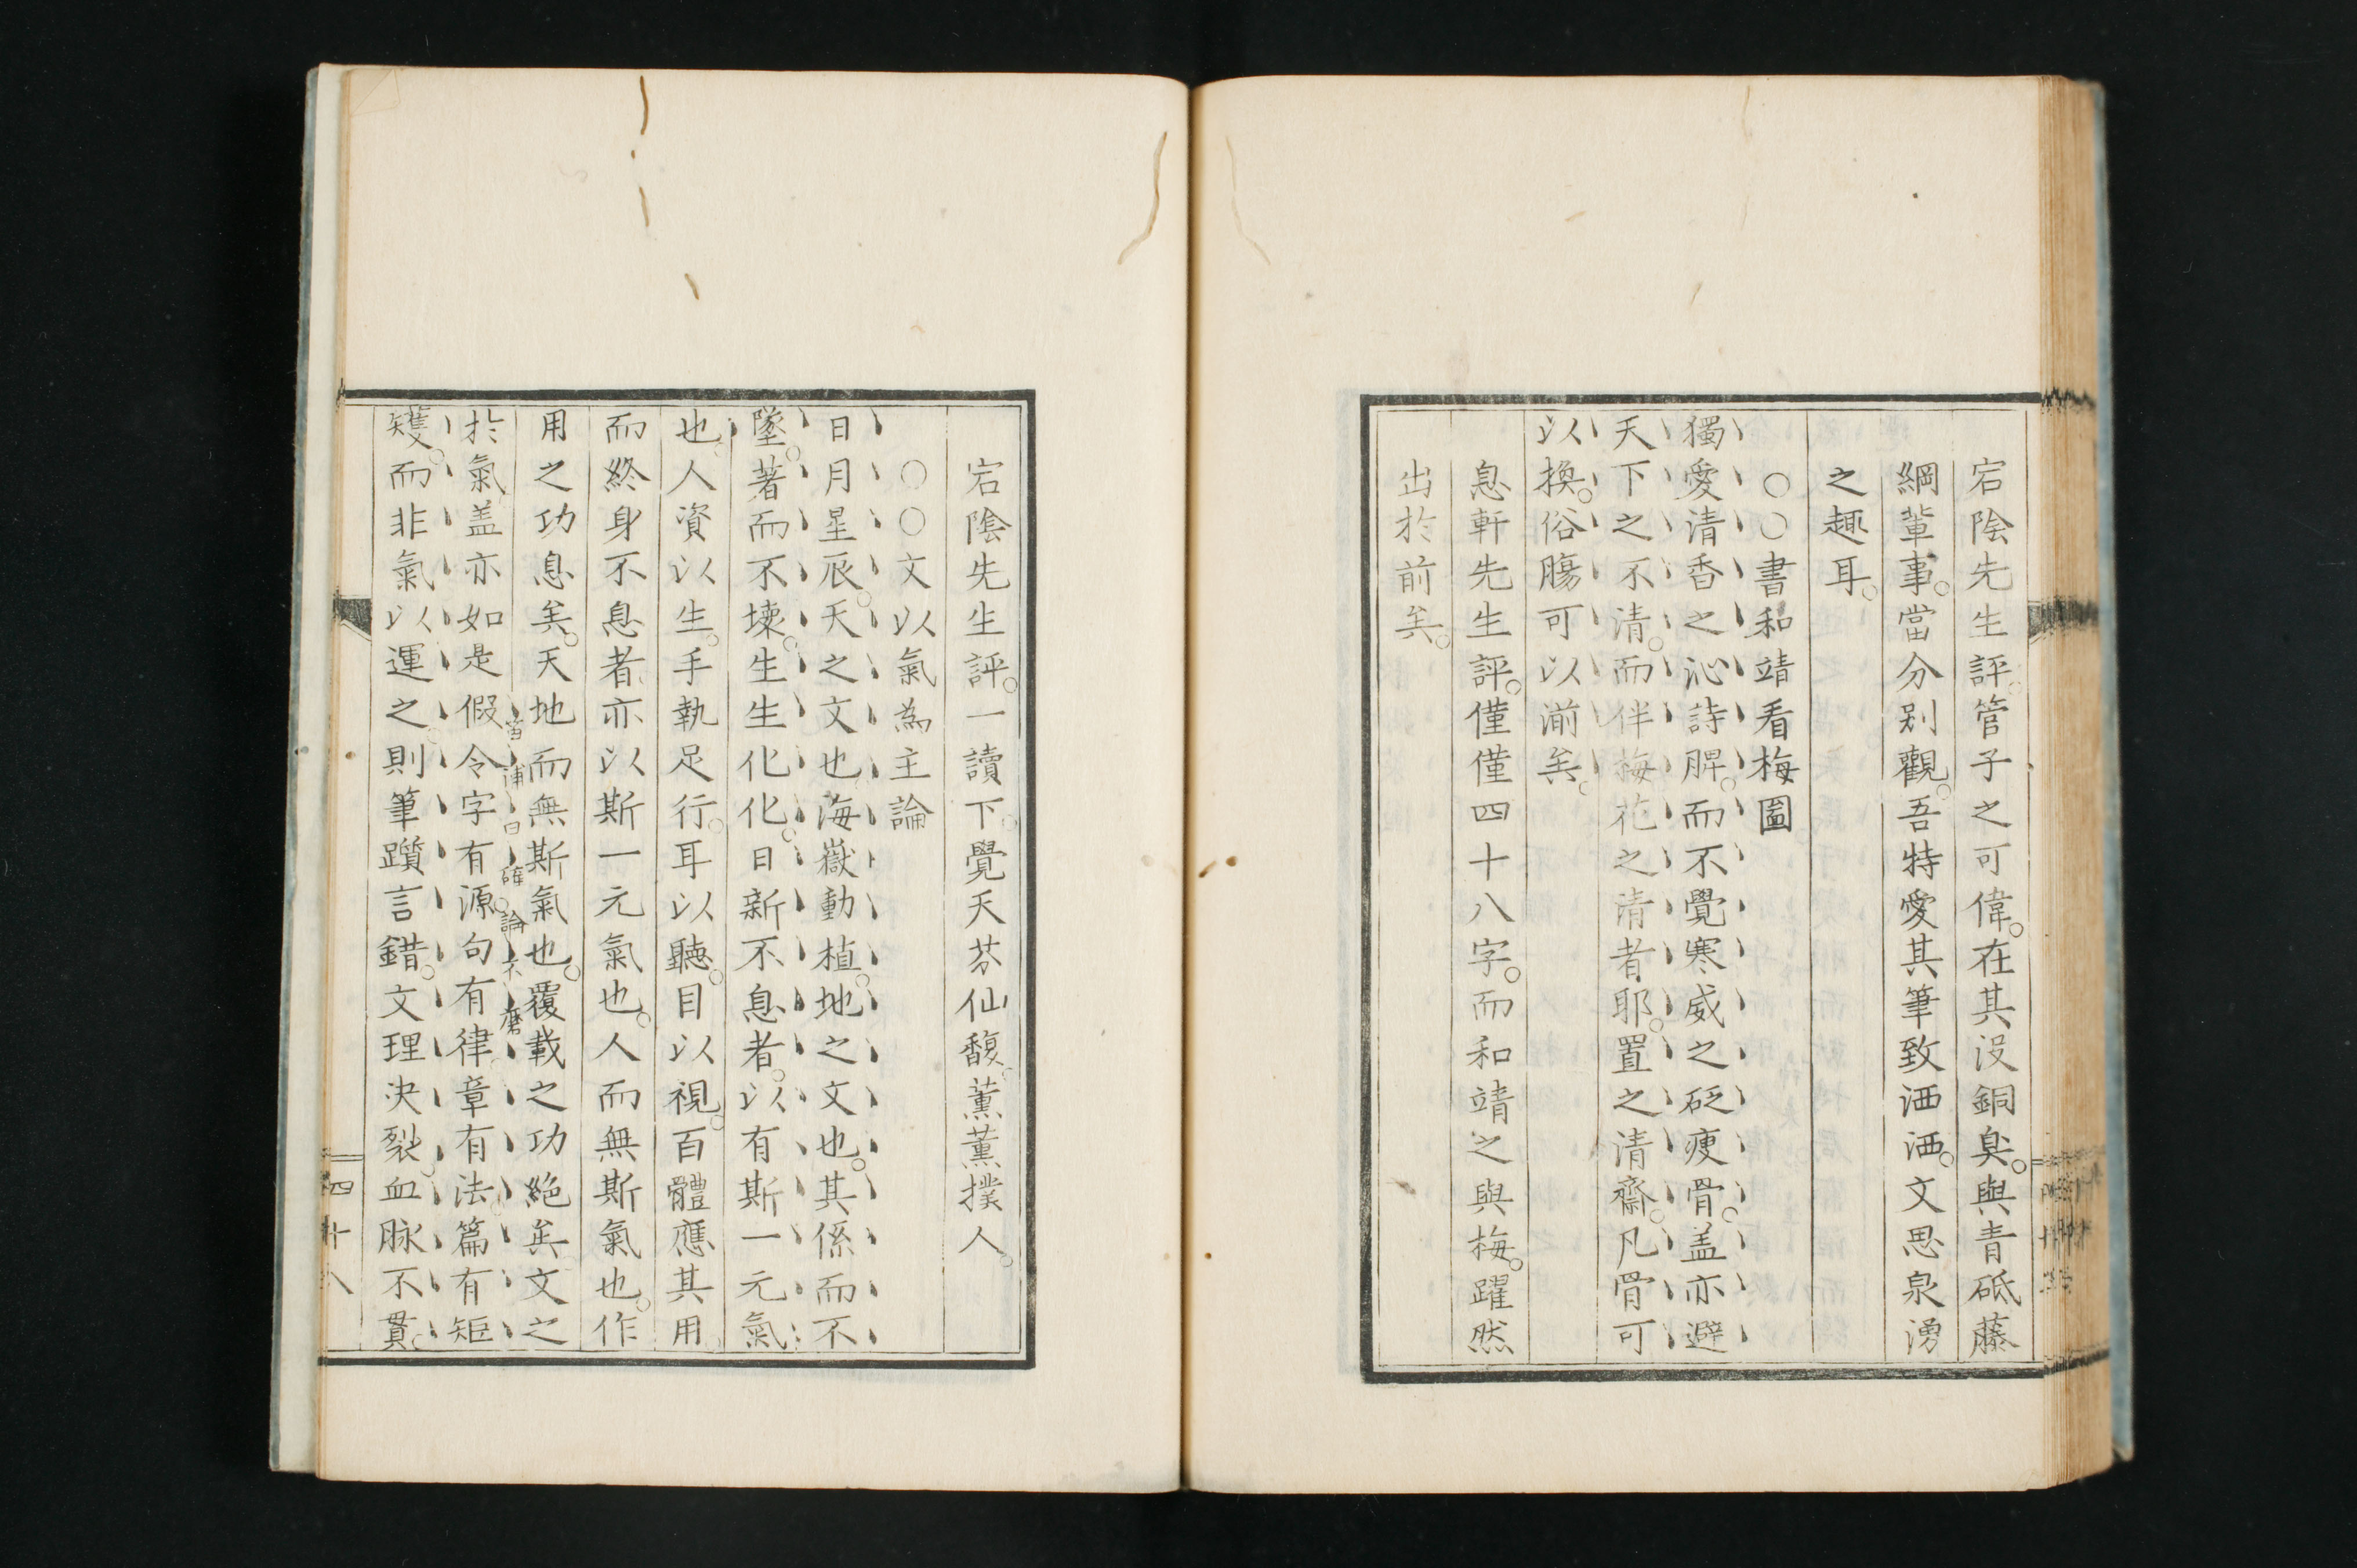 宕陰先生評。管子之可偉。在其沒銅臭。與青砥藤
綱輩事。當分別觀。吾特愛其筆致洒洒。文思泉湧
之趣耳。
○○書和靖看梅圖
獨愛清香之沁詩脾。而不覺寒威之砭瘦骨。盖亦避
天下之不清。而伴梅花之清者耶。置之清齋。凡骨可
以換。俗膓可以湔矣。
息軒先生評。僅僅四十八字。而和靖之與梅。躍然
出於前矣。
宕陰先生評。一讀下。覺天芬仙馥。薰薰撲人。
○○文以氣為主論
日月星辰。天之文也。海嶽動植。地之文也。其係而不
墜。著而不壊。生生化化。日新不息者。以有斯一元氣
也。人資以生。手執足行。耳以聽。目以視。百體應其用。
而終身不息者。亦以斯一元氣也。人而無斯氣也。作
用之功息矣。天地而無斯氣也。覆載之功絶矣。文之
於氣盖亦如是。假令字有源。句有律。章有法。篇有矩
笛浦曰。確論不磨
矱。而非氣以運之。則筆躓言錯。文理决裂。血脉不貫。
四十八